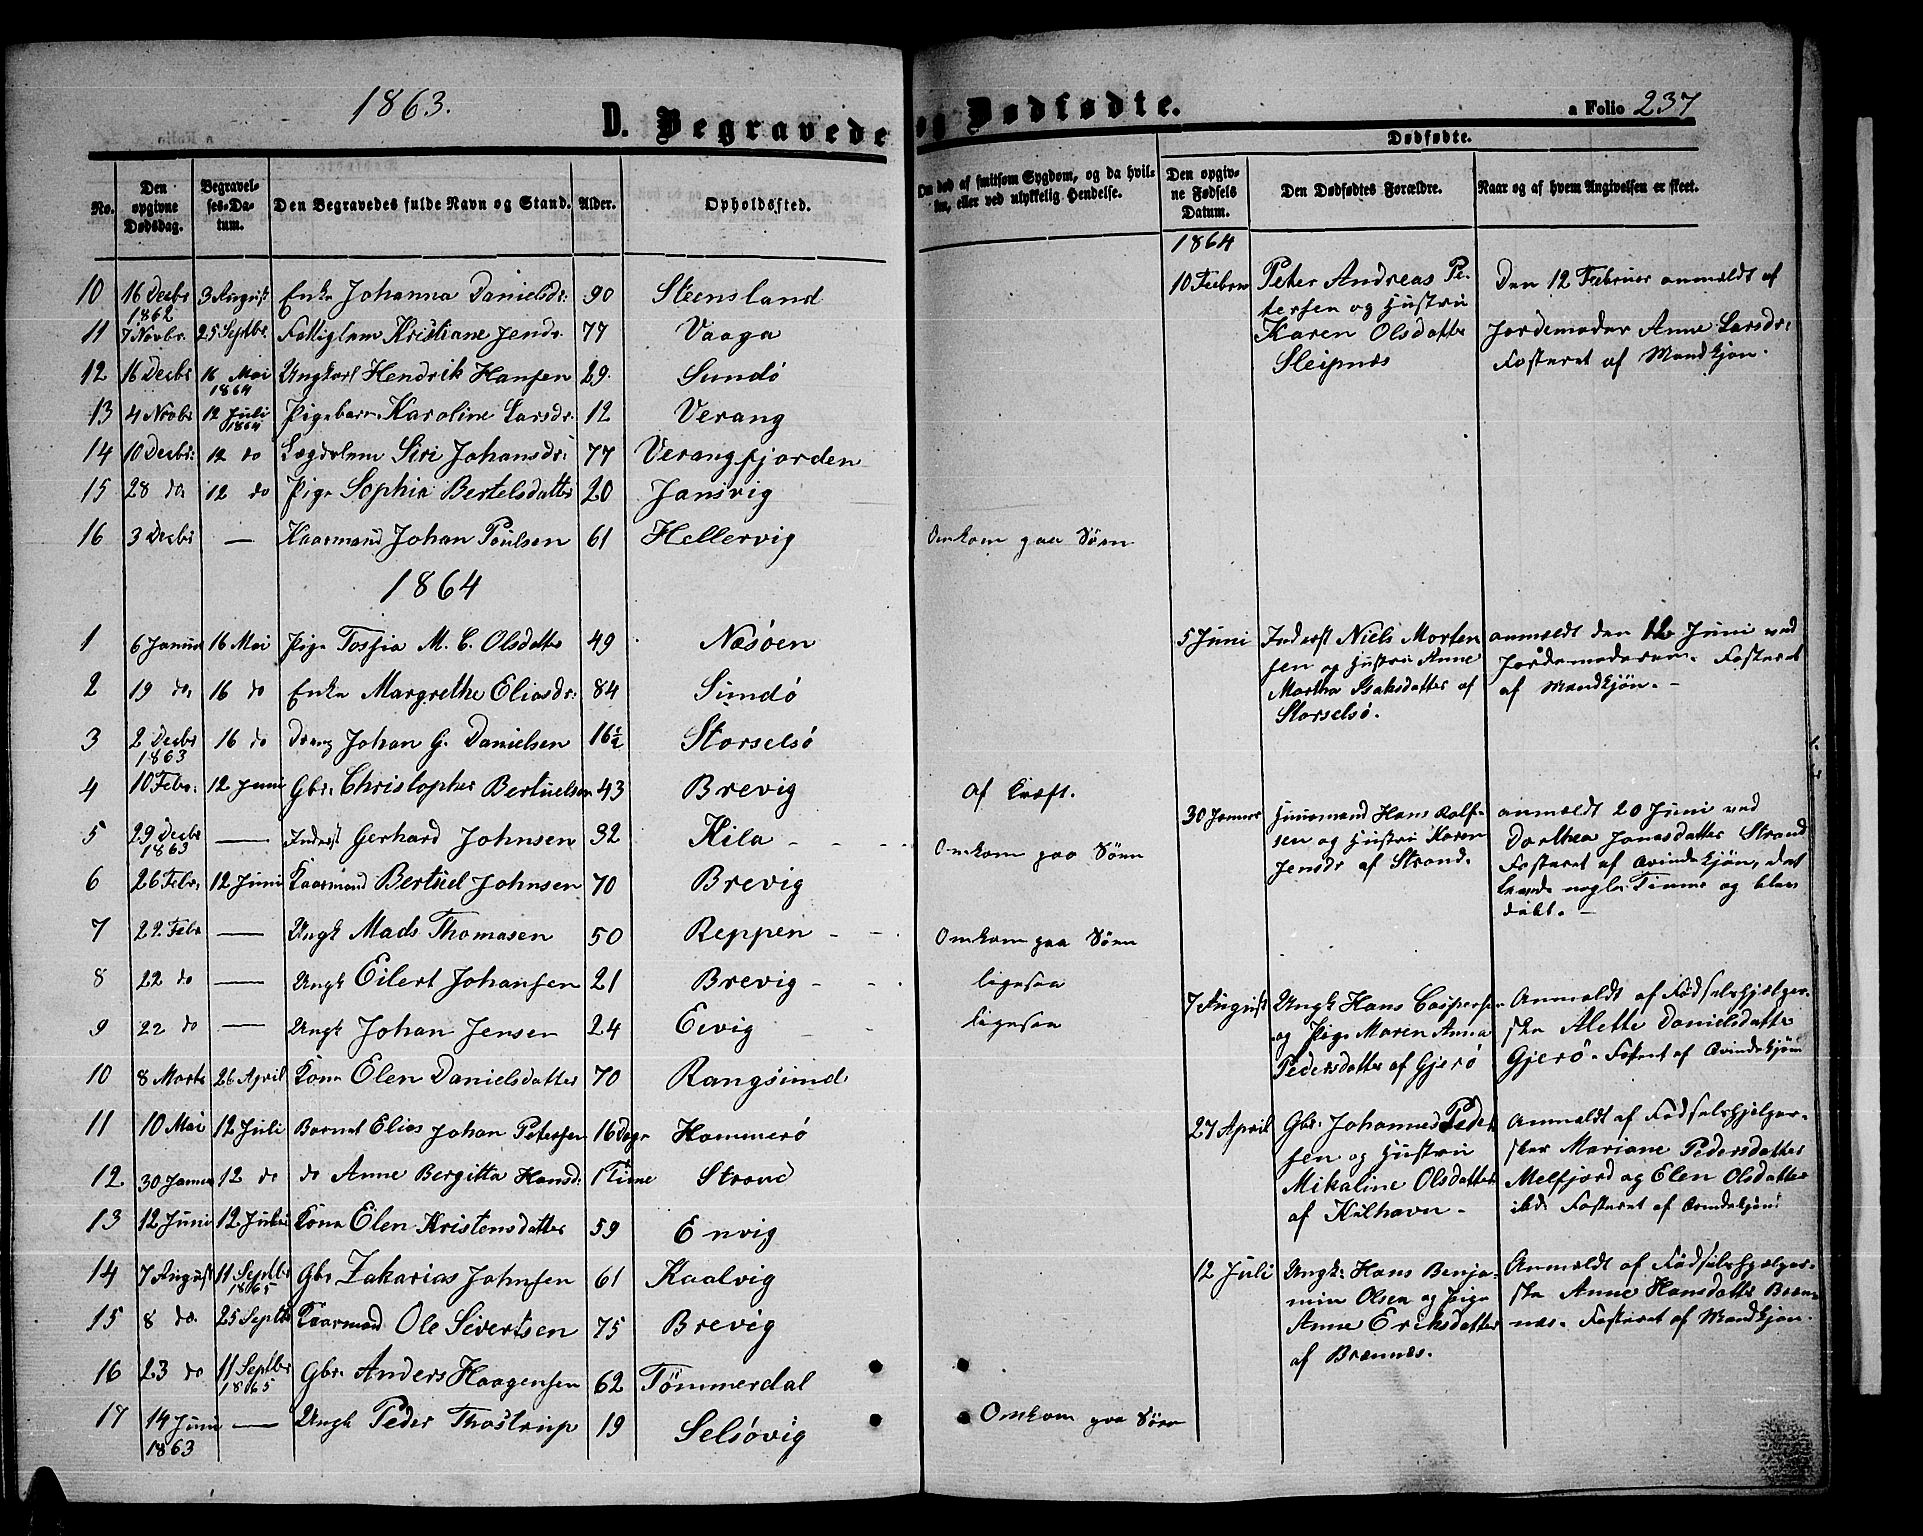 1863.
D. Begravede og Dødfødte.
a Folio 237
No.
Den opgivne Dødsdag.
Begravelses-Datum.
Den Begravedes fulde Navn og Stand.
Alder.
Opholdssted.
Om død af smitsom Sygdom, og da hvilken, eller ved ulykkelig Hendelse.
Dødfødte.
Den opgivne Fødsels Datum.
Den Dødfødtes Forældre.
Naar og af hvem Angivelsen er skeet.
10 16 Decbr 1862 3 August Enke Johanna Danielsdr: 90 Steensland
11 7 Novbr. 25 Septbr. Fattiglem Kristiane Jensdr. 77 Vaaga
12 16 Decbr 16 Mai 1864 Ungkarl Hendrik Hansen 29. Sundö
13 4 Novbr 12 Juli 1864 Pigebarn Karoline Larsdr. 12 Verang
14 10 Decbr: 12 do Lægdslem Siri Johansdr: 77 Verangfjorden
15 28 do 12 do Pige Sophia Bertelsdatter 20 Jansvig
16 3 Decbr — Kaarmand Johan Poulsen 61 Hellervig Omkom paa Søen
1864
1 6 Januar 16 Mai Pige Tossia M. C. Olsdatter 49 Næsöen
2 19 do 16 do Enke Margrethe Eliasdr: 84 Sundö
3 2 Decbr 1863 16 do Dreng Johan G. Danielsen 16½ Storselsö
4 10 Febr. 12 Juni Gbr: Christopher Bertuelsen 43 Brevig af Kræft.
5 29 Decbr 1863 — Inderst Gerhard Johnsen 32 Kila Omkom paa Søen
6 26 Febr. 12 Juni Kaarmand Bertuel Johnsen 70 Brevig
7 22 Febr — Ungk Mads Thomasen 50 Reppen Omkom paa Søen
8 22 do — Ungk Eilert Johansen 21 Brevig ligesaa
9 22 do — Ungk Johan Jensen 24 Eevig ligesaa
10 8 Marts 26 April Kone Elen Danielsdatter 70 Rangsund
11 10 Mai 12 Juli Barnet Elias Johan Petersen 16 Dage Hammerö
12 30 Januar 12 do do Anne Bergitta Hansd: 1 Time Strand
13 12 Juni 12 Juli Kone Elen Kristensdatter 59 Envig
14 7 August 11 Septbr 1865 Gbr Zakarias Johnsen 61 Kaalvig
15 8 do. 25 Septbr Kaarmand Ole Sivertsen 75 Brevig
16 23 do 11 Septbr 1865 Gbr. Anders Haagensen 62 Tömmerdal
17 14 Juni 1863 — Ungk Peder Thostrup 19 Selsövig Omkom paa Søen
1864
10 Februar
Peter Andreas Pe-
tersen og Hustru
Karen Olsdatter
Sleipnæs
Den 12 Februar anmeldt af
Jordemoder Anne Larsdr:
Fosteret af Mandkjøn.
5 Juni
Inderst Niels Morten
sen og Hustru Anne
Martha Isaksdatter af
Storselsö.
anmeldt den 12 Juni ved
Jordemoderen. Fosteret
af Mandkjøn. -
30 Januar
Huusmand Hans Rolf-
sen og Hustru Karen
Jensdr af Strand.
anmeldt 20 Juni ved
Dorthea Jonasdatter Strand
Fosteret af Qvindekjøn, det
levede nogle Timer og blev
døbt. -
7 August
Ungk Hans Caspersen
og Pige Maren Anna
Pedersdatter af Gjerö
Anmeldt af Fødselshjelper-
ske Alette Danielsdatter
Gjerö. Fosteret af Qvindekjøn
27 April
Gbr. Johannes Peder
sen og Hustru
Mikaline Olsdatter
af Kilhavn -
Anmeldt af Fødselshjelper-
sker Mariane Pedersdatter
Melfjord og Elen Olsdatter
ibd. Fosteret af Qvindekjøn:
12 Juli
Ungk: Hans Benja-
min Olsen og Pige
Anne Eriksdatter
af Brænnæs.
Anmeldt af Fødselshjelper-
ske Anne Hansdatter Bræn-
næs. Fosteret af Mandkjøn.